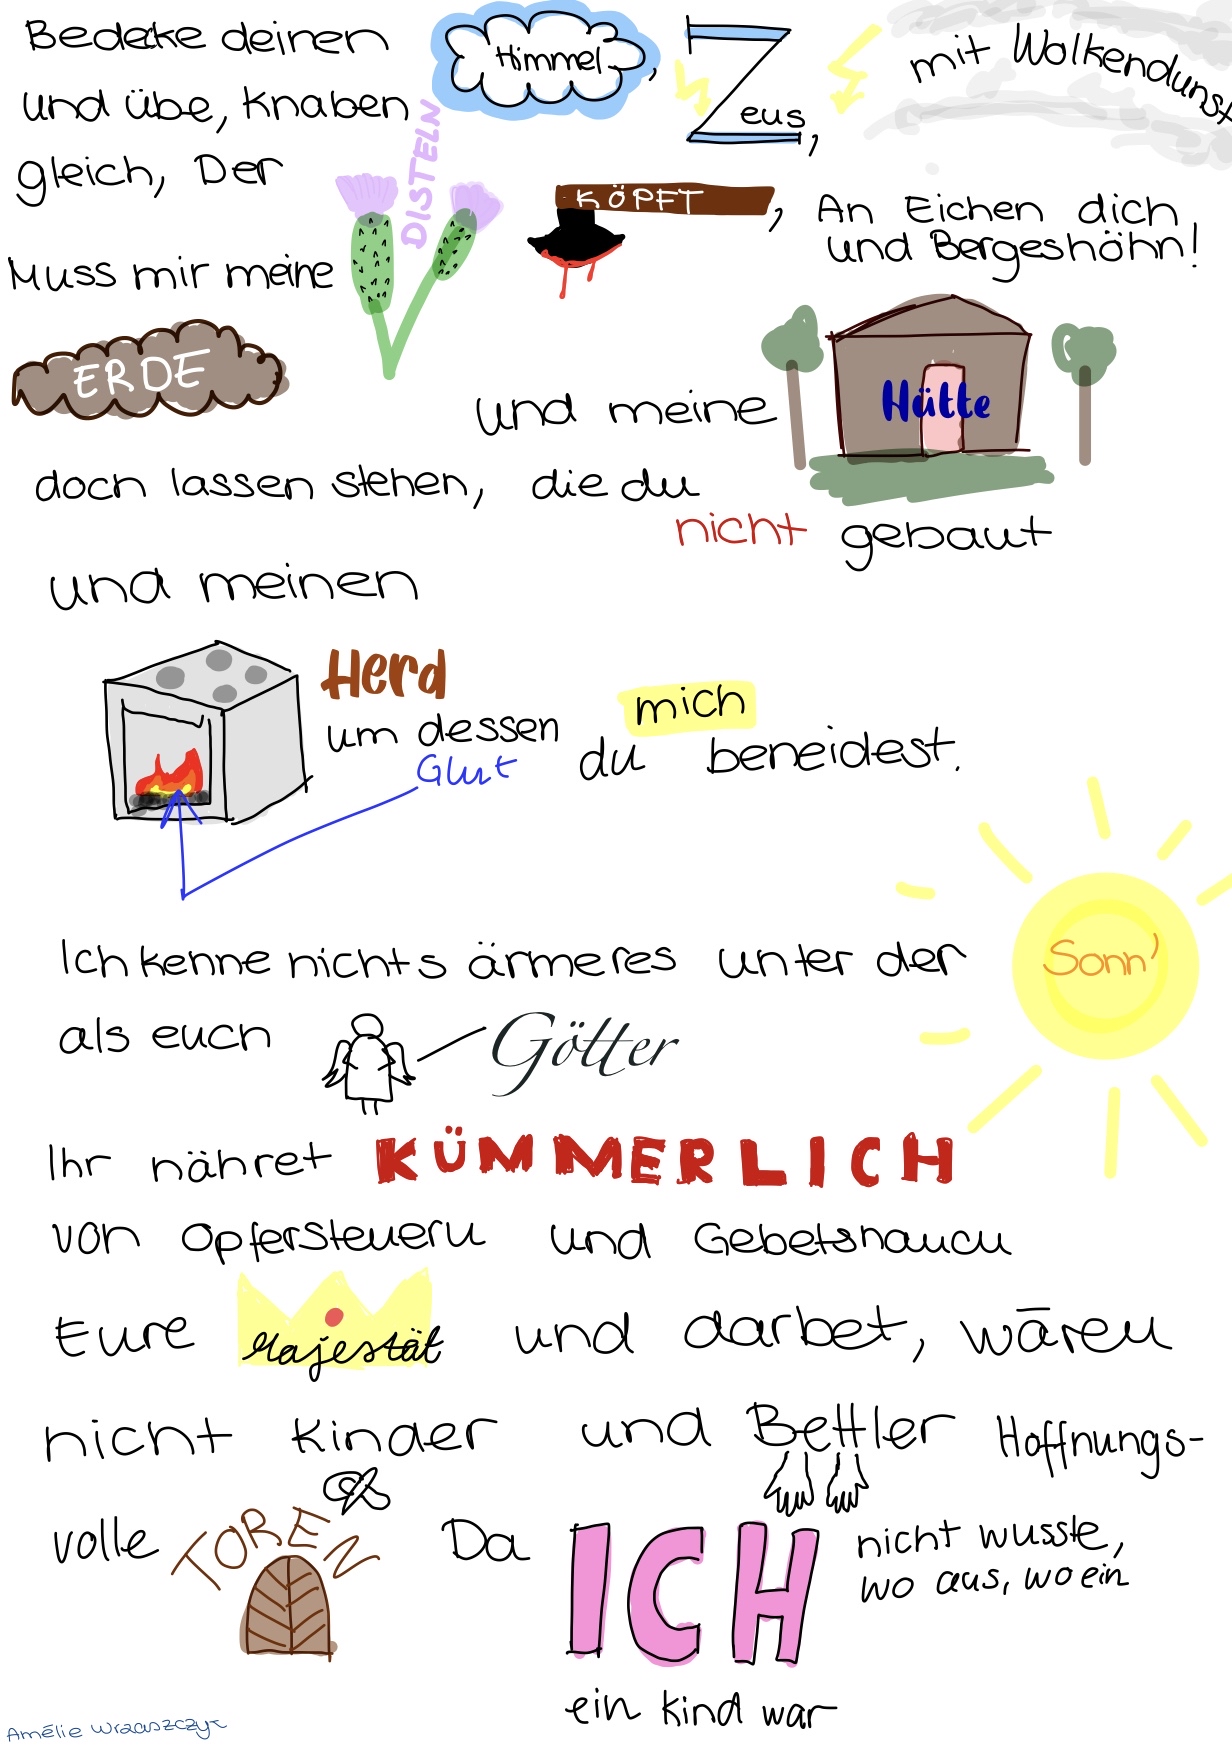 Bedecke deinen Himmel, Zeus, mit Wolkendunst
und übe, Knaben
gleich, Der DISTELN KÖPFT, An Eichen dich
und Bergeshöhn!
Muss mir meine
ERDE
und meine Hütte
doch lassen stehen, die du
nicht gebaut
und meinen
Herd
um dessen
Glut du mich beneidest.
Ich kenne nichts ärmeres unter der Sonn'
als euch Götter
Ihr nähret KÜMMERLICH
von Opfersteuern und Gebetshauch
Eure Majestät und darbet, wären
nicht Kinder und Bettler Hoffnungs-
volle TOREN Da ICH nicht wusste,
wo aus, wo ein
ein Kind war
Amélie